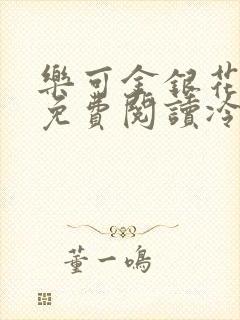 樂可金銀花
免費閱讀冷
董一鳴